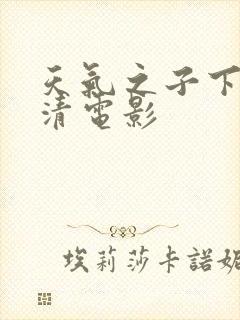 天氣之子下
清電影
埃莉莎卡諾妮